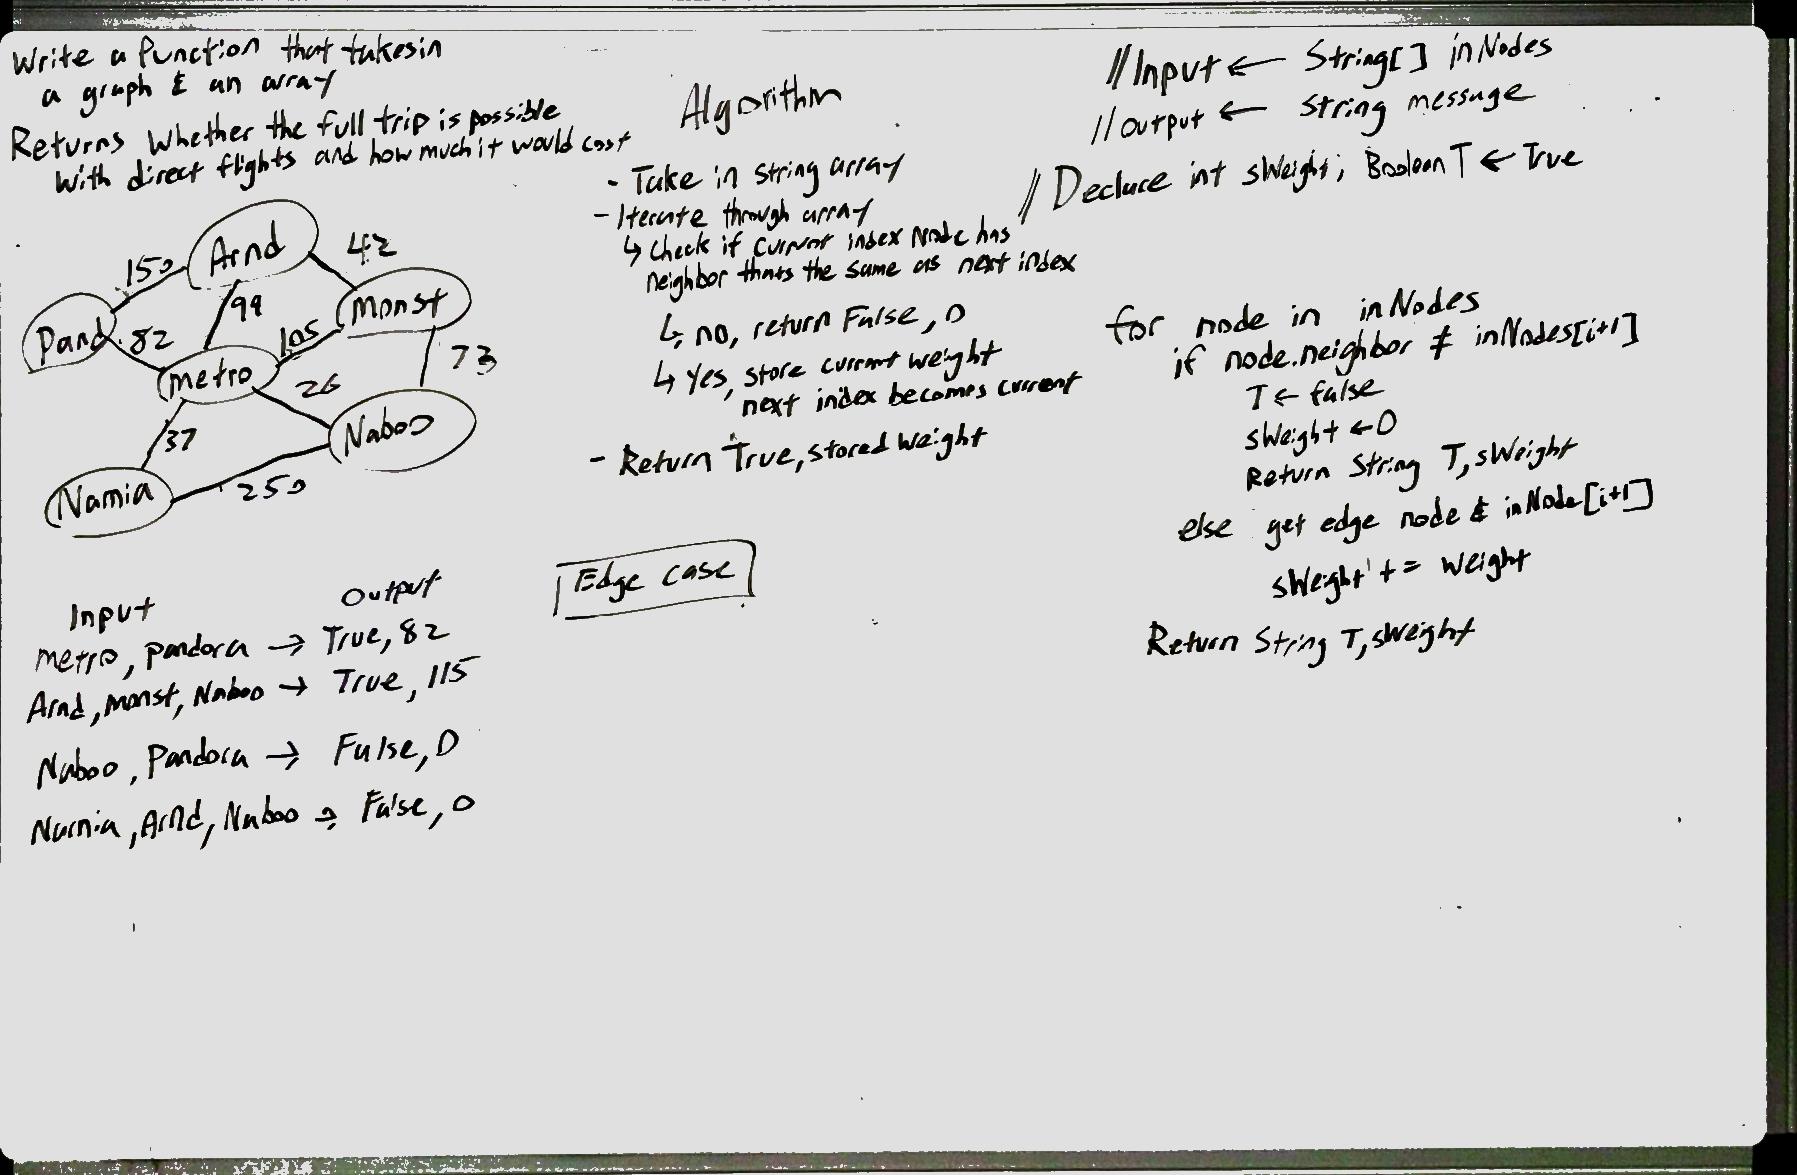 Write a function that takes in
a graph & an array
Returns whether the full trip is possible
with direct flights and how much it would cost
Arnd
150
42
Pand
99
Monst
82
105
Metro
26
73
37
Naboo
Narnia
250
Input
Output
Metro, Pandora → True, 82
Arnd, Monst, Naboo → True, 115
Naboo, Pandora → False, 0
Narnia, Arnd, Naboo → False, 0
Algorithm
- Take in string array
- Iterate through array
↳ Check if current index Node has
neighbor thats the same as next index
↳ no, return False, 0
↳ Yes, store current weight
next index becomes current
- Return True, stored weight
Edge case
// Input ← String[] inNodes
// output ← string message
// Declare int sWeight; Boolean T ← True
for node in inNodes
if node.neighbor ≠ inNodes[i+1]
T ← false
sWeight ← 0
Return String T, sWeight
else get edge node & inNode[i+1]
sWeight += weight
Return String T, sWeight